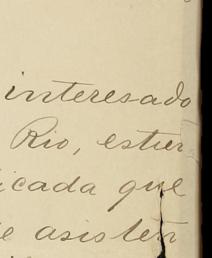 interesado
Rio, estu
icada que
e asisten